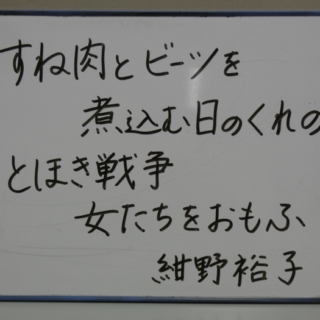 すね肉とビーツを
煮込む日のくれの
とほき戦争
女たちをおもふ
紺野裕子